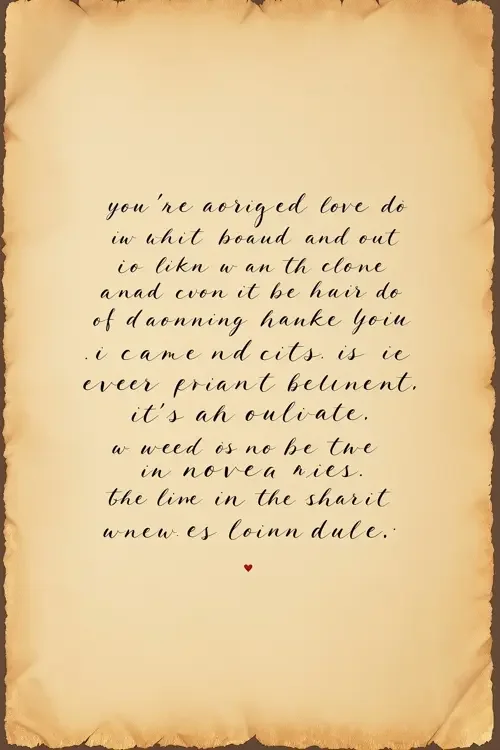 you're aoriged love do
iw whit boaud and out
io likn w an th clone
anad cvon it be huir do
of daonning hanke Yoiu
. i came nd cits. is ie
eveer priant belinent.
it's ah oulivate.
w weed os no be twe
in novea ries.
the line in the sharit
wnew. es loinn dule.